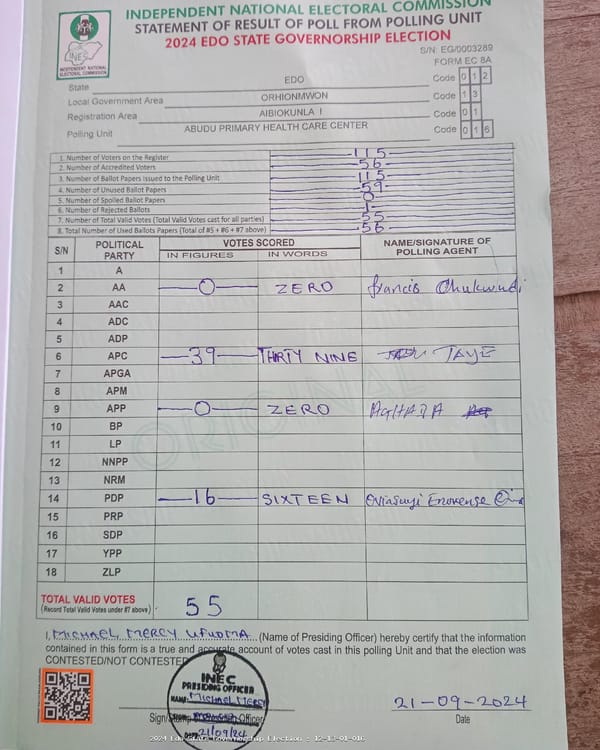 INDEPENDENT NATIONAL ELECTORAL COMMISSION
STATEMENT OF RESULT OF POLL FROM POLLING UNIT
2024 EDO STATE GOVERNORSHIP ELECTION
INEC
INDEPENDENT NATIONAL
ELECTORAL COMMISSION
S/N: EG/0003289
FORM EC 8A
State EDO Code 0 1 2
Local Government Area ORHIONMWON Code 1 3
Registration Area AIBIOKUNLA I Code 0 1
Polling Unit ABUDU PRIMARY HEALTH CARE CENTER Code 0 1 6
1. Number of Voters on the Register 115
2. Number of Accredited Voters 56
3. Number of Ballot Papers Issued to the Polling Unit 115
4. Number of Unused Ballot Papers 59
5. Number of Spoiled Ballot Papers 0
6. Number of Rejected Ballots 1
7. Number of Total Valid Votes (Total Valid Votes cast for all parties) 55
8. Total Number of Used Ballots Papers (Total of #5 + #6 + #7 above) 56
S/N POLITICAL PARTY VOTES SCORED NAME/SIGNATURE OF POLLING AGENT
IN FIGURES IN WORDS
1 A
2 AA 0 ZERO francis Chukwudi
3 AAC
4 ADC
5 ADP
6 APC 39 THIRTY NINE TAYE
7 APGA
8 APM
9 APP 0 ZERO
10 BP
11 LP
12 NNPP
13 NRM
14 PDP 16 SIXTEEN
15 PRP
16 SDP
17 YPP
18 ZLP
ORIGINAL
TOTAL VALID VOTES 55
(Record Total Valid Votes under #7 above)
I, MICHAEL MERCY UFUOMA (Name of Presiding Officer) hereby certify that the information
contained in this form is a true and accurate account of votes cast in this polling Unit and that the election was
CONTESTED/NOT CONTESTED
INEC
PRESIDING OFFICER
NAME: MICHAEL MERCY
DATE 21/09/24
21-09-2024
Date
2024 Edo State Governorship Election - 12-13-01-016